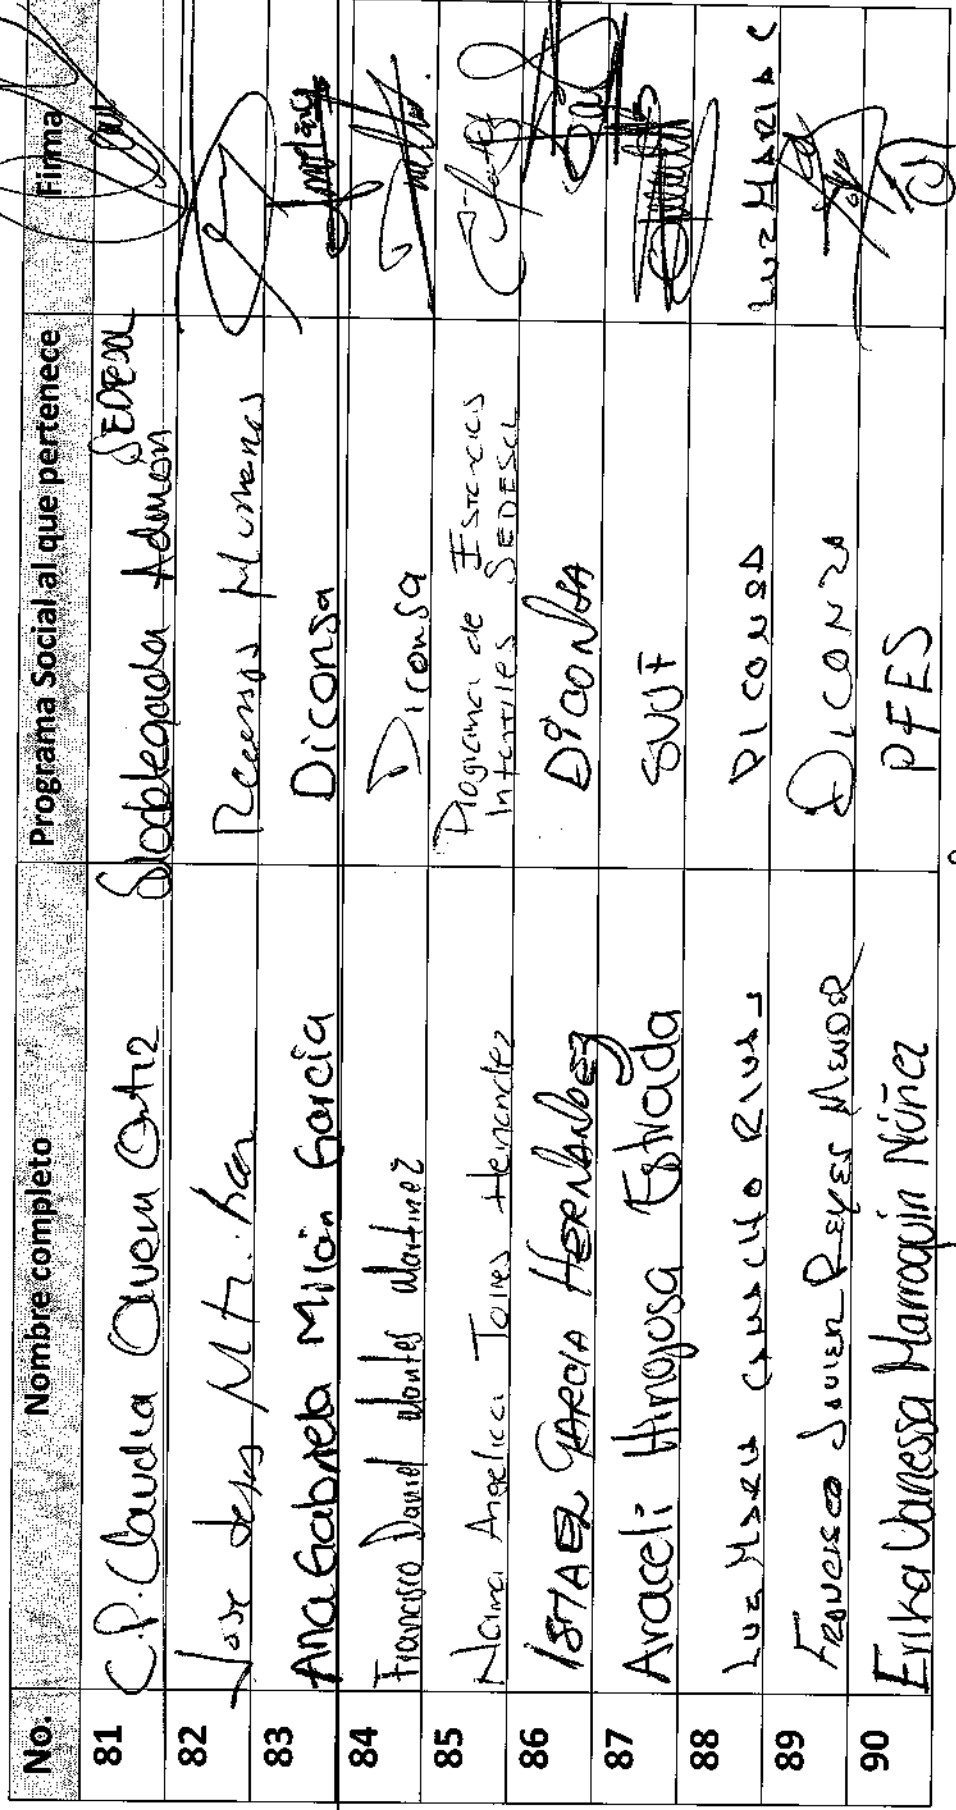 No. Nombre completo Programa Social al que pertenece Firma
81 C.P. Claudia Olvera Ortiz Subdelegada Admón SEDESOL
82 Jose Recursos Humanos
83 Ana Gabriela Milián García Diconsa
84 Francisco Daniel Montes Martinez Diconsa
85 Norma Angelica Torres Hernandez Programa de Estancias
Infantiles SEDESOL
86 ISMAEL GARCIA HERNANDEZ DICONSA
87 Araceli Hinojosa Estrada SVUF
88 LUZ MARIA CAMACHO RIVAS DICONSA LUZ MARIA C
89 FRANCISCO JAVIER REYES DICONSA
90 Erika Vanessa Marroquín Núñez PFES